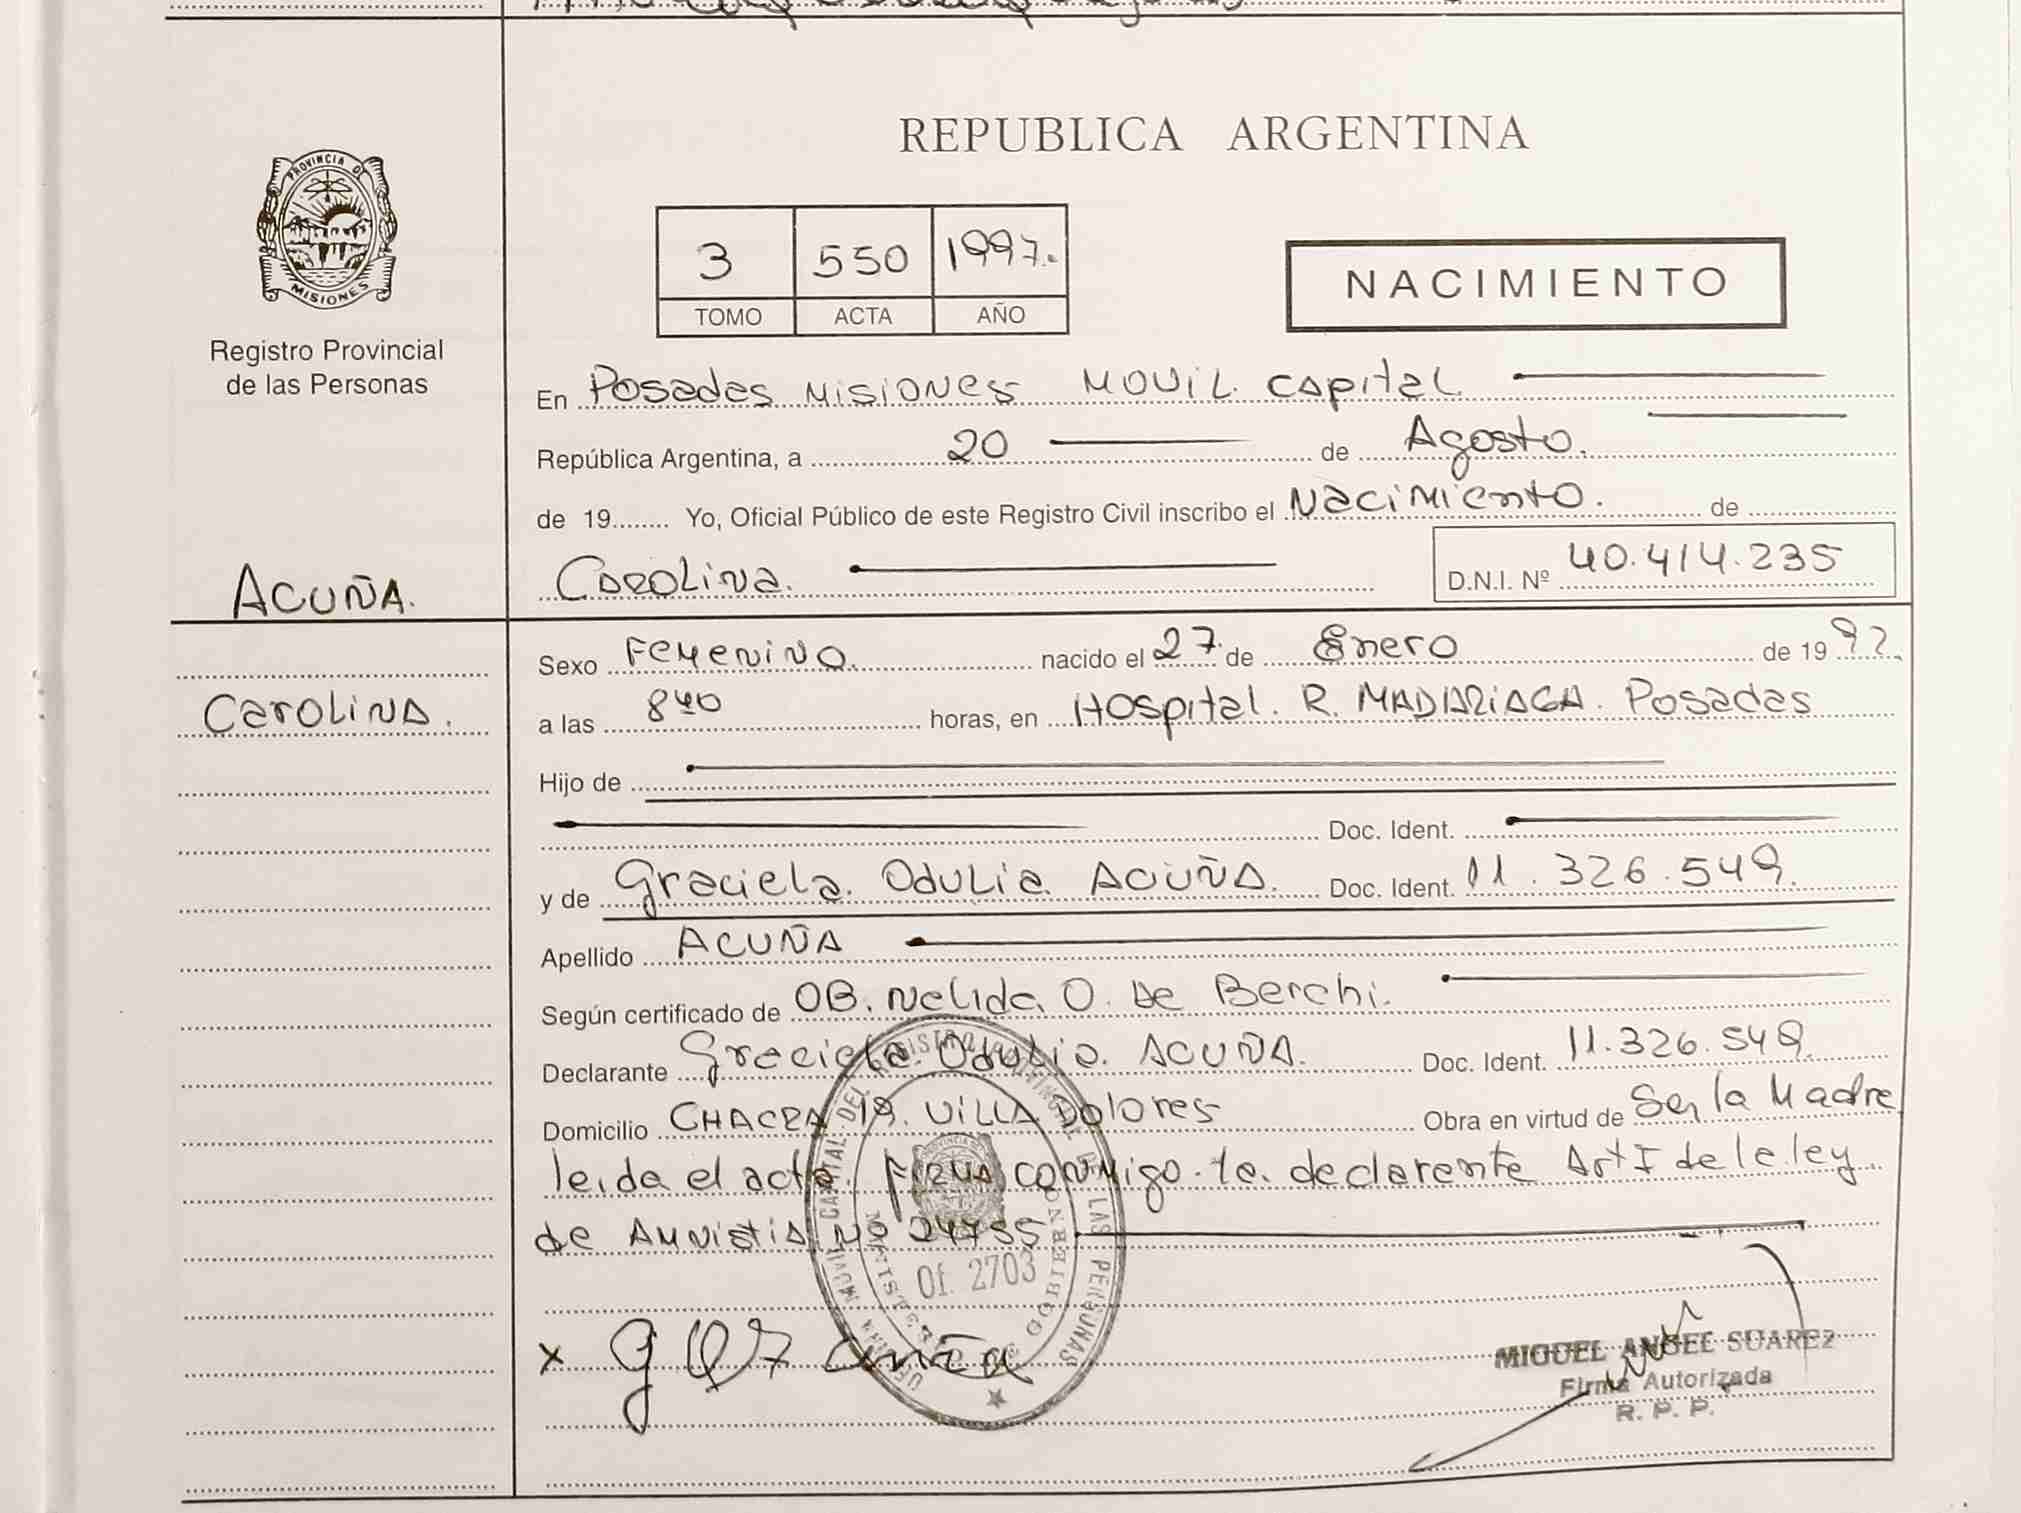 REPUBLICA ARGENTINA
PROVINCIA DE
MISIONES
Registro Provincial
de las Personas
3 550 1997.
TOMO ACTA AÑO
NACIMIENTO
En Posadas Misiones Movil Capital
República Argentina, a 20 de Agosto.
de 19........ Yo, Oficial Público de este Registro Civil inscribo el Nacimiento. de
Carolina.
D.N.I. Nº 40.414.235
ACUÑA.
Carolina.
Sexo Femenino. nacido el 27 de Enero de 19
a las 8 40 horas, en Hospital. R. MADARIAGA. Posadas
Hijo de
Doc. Ident.
y de Graciela. Odulia. ACUÑA. Doc. Ident. 11.326.549.
Apellido ACUÑA
Según certificado de OB. Nelida. O. de Berchi.
Declarante Graciela Odulia. ACUÑA. Doc. Ident. 11.326.549.
Domicilio CHACRA 19. VILLA Dolores Obra en virtud de Ser la Madre
leida el acta. Firma conmigo. la. declarante Art I de la ley
de Amnistia No 24755
Of. 2703
MOVIL CAPITAL DEL REGISTRO PROVINCIAL DE LAS PERSONAS
MINISTERIO DE GOBIERNO
x
MIGUEL ANGEL SUAREZ
Firma Autorizada
R. P. P.